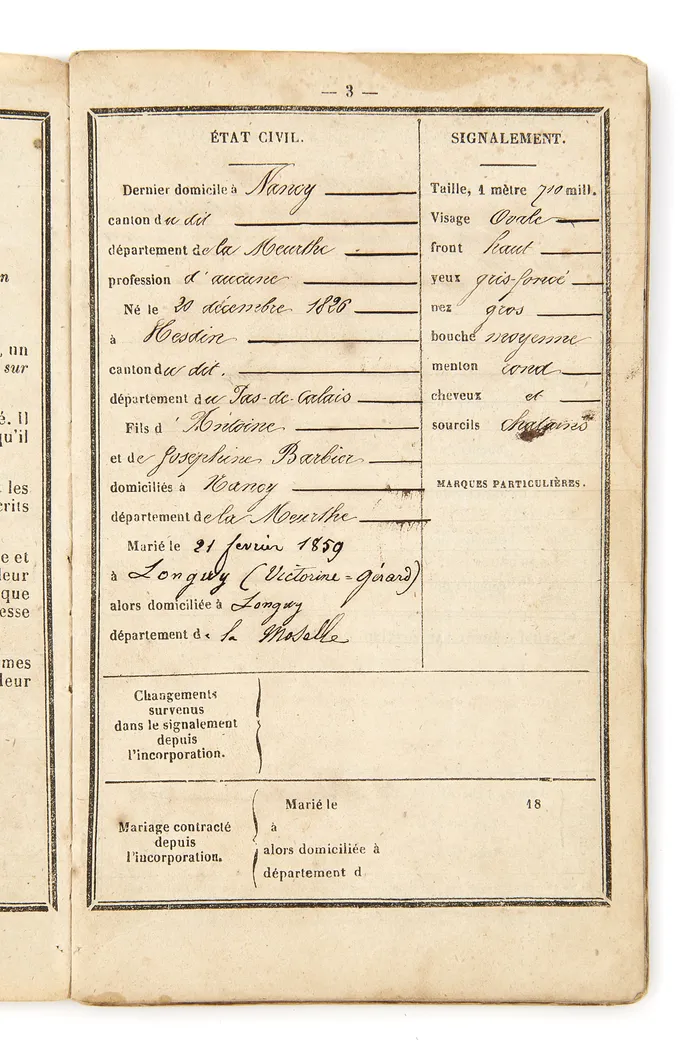 n
, un
sur
é. Il
qu'il
les
crits
e et
leur
que
esse
mes
leur
— 3 —
ÉTAT CIVIL.
Dernier domicile à Nancy
canton du dit
département de la Meurthe
profession d'aucune
Né le 20 décembre 1826
à Hesdin
canton du dit.
département du Pas-de-Calais
Fils d'Antoine
et de Joséphine Barbier
domiciliés à Nancy
département de la Meurthe
Marié le 21 fevrier 1859
à Longwy (Victorine = Gérard)
alors domiciliée à Longwy
département de la Moselle
SIGNALEMENT.
Taille, 1 mètre 710 mill.
Visage Ovale
front haut
yeux gris-foncé
nez gros
bouche moyenne
menton rond
cheveux et
sourcils chatains
MARQUES PARTICULIÈRES.
Changements
survenus
dans le signalement
depuis
l'incorporation.
Mariage contracté
depuis
l'incorporation.
Marié le 18
à
alors domiciliée à
département d